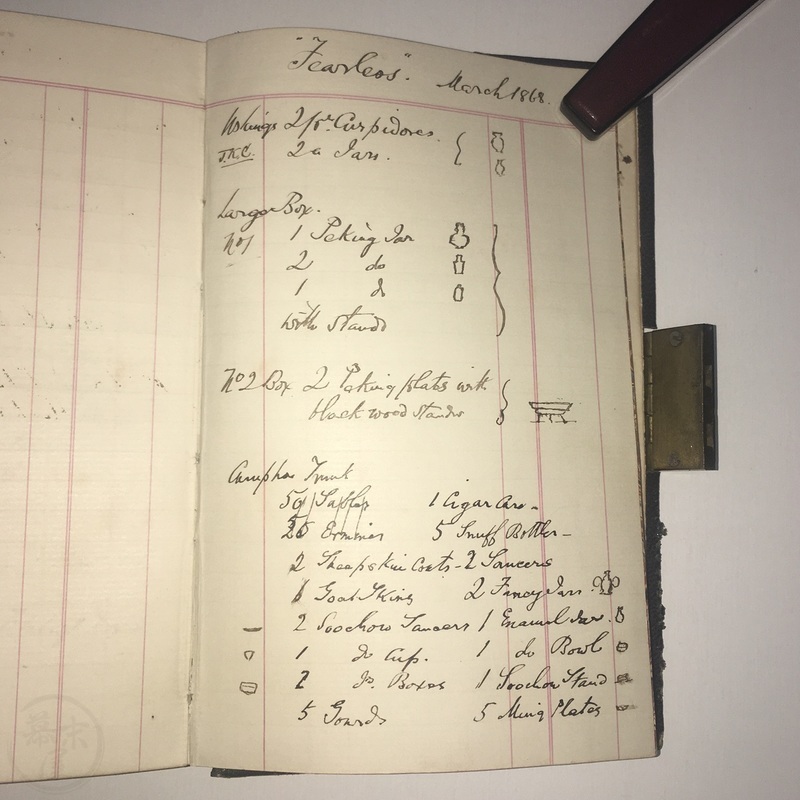 "Fearless". March 1868.
2 pr. Cuspidores.
2 a Jars.
Large Box.
No 1 1 Peking Jar
2 do
1 do
with stands
No 2 Box 2 Peking plates with
black wood stands
Camphor Trunk
50 Sables 1 Cigar Case -
Ermines 5 Snuff Bottles -
2 Sheepskin Coats - 2 Saucers
Goat Skins 2 Fancy Jars.
2 Soochow Saucers 1 Enamel Jar.
1 do Cup. 1 do Bowl
2 Do. Boxes 1 Soochow Stand
5 Gourds 5 Ming Plates